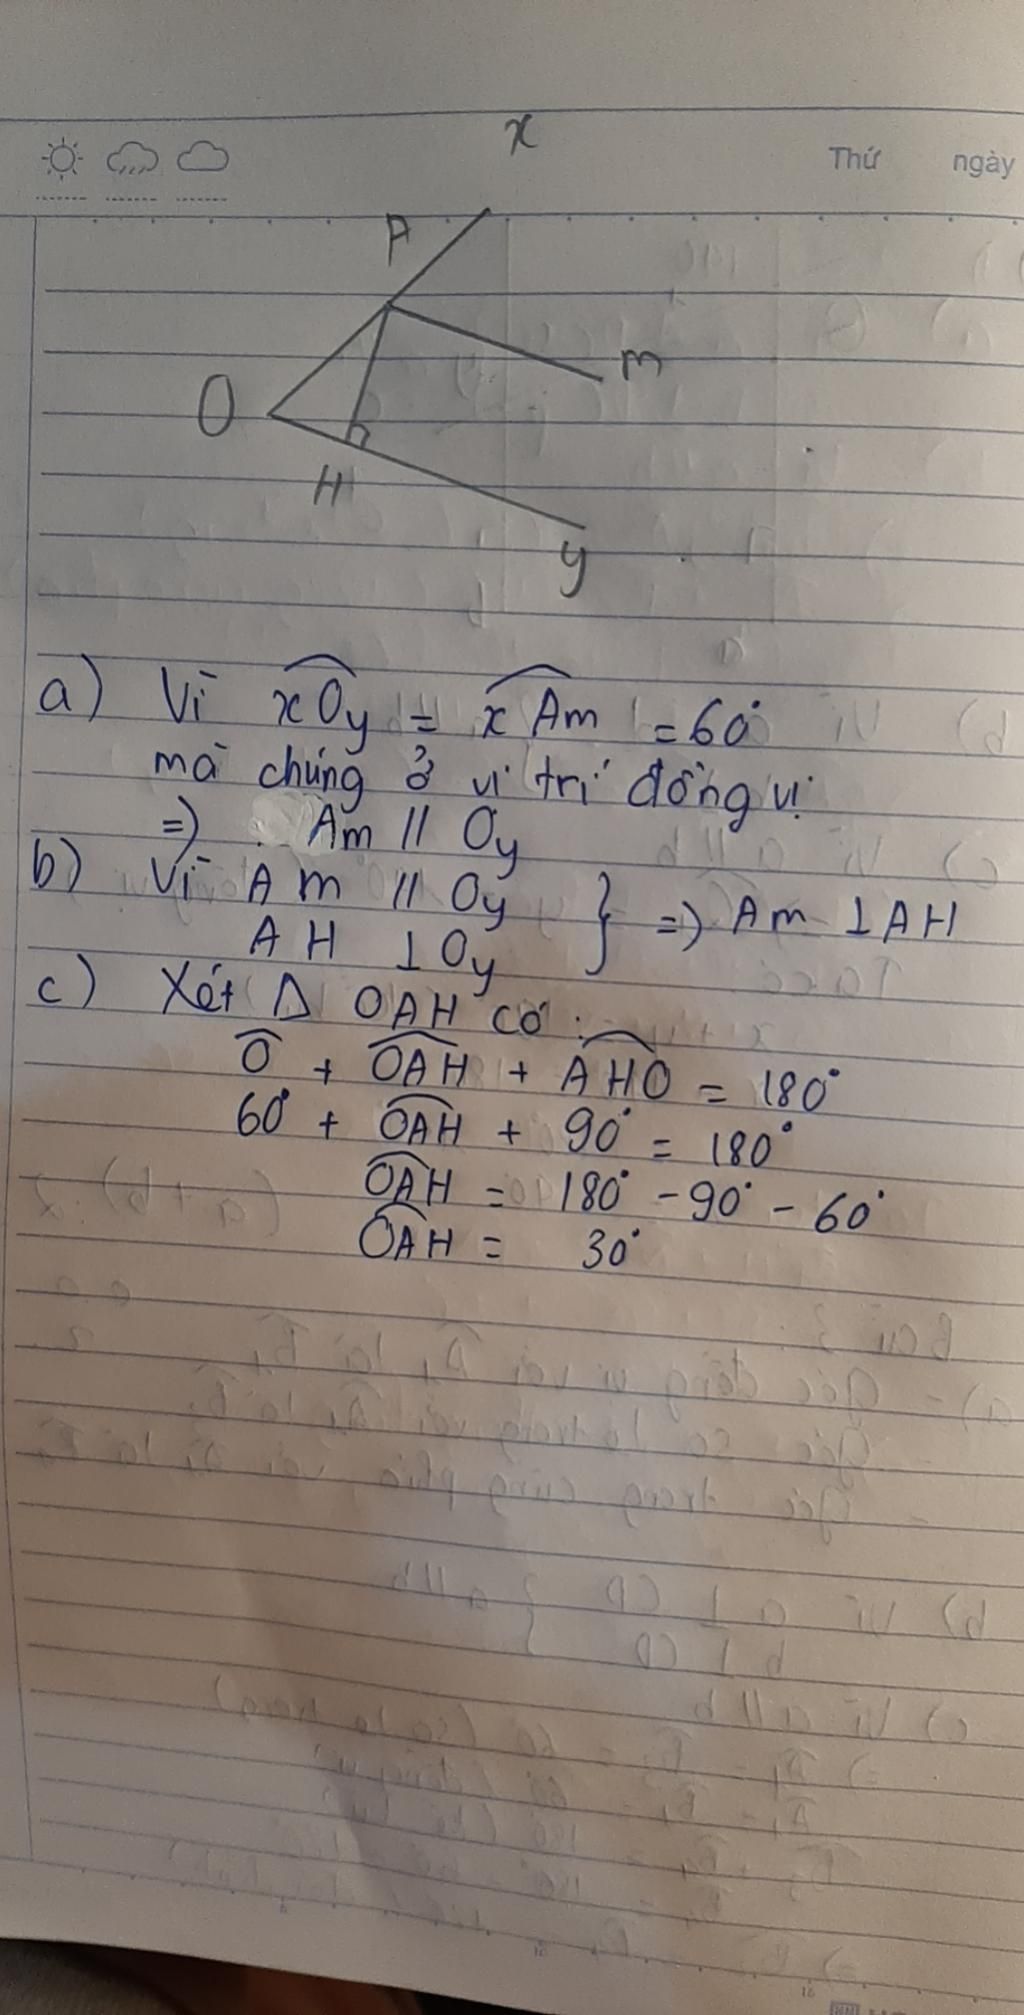 x
Thứ ngày
A
m
O
H
y
a) Vì xOy = xAm = 60°
mà chúng ở vị trí đồng vị
=> Am // Oy
b) Vì Am // Oy
AH ⊥ Oy } => Am ⊥ AH
c) Xét Δ OAH có :
O + OAH + AHO = 180°
60° + OAH + 90° = 180°
OAH = 180° - 90° - 60°
OAH = 30°